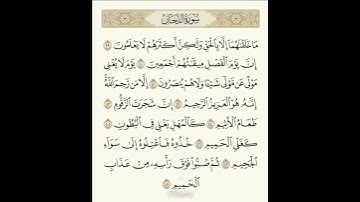 سورة الدخان
مَا خَلَقْنَٰهُمَآ إِلَّا بِٱلْحَقِّ وَلَٰكِنَّ أَكْثَرَهُمْ لَا يَعْلَمُونَ ٣٩
إِنَّ يَوْمَ ٱلْفَصْلِ مِيقَٰتُهُمْ أَجْمَعِينَ ٤٠ يَوْمَ لَا يُغْنِى
مَوْلًى عَن مَّوْلًى شَيْـًٔا وَلَا هُمْ يُنصَرُونَ ٤١ إِلَّا مَن رَّحِمَ ٱللَّهُ
إِنَّهُۥ هُوَ ٱلْعَزِيزُ ٱلرَّحِيمُ ٤٢ إِنَّ شَجَرَتَ ٱلزَّقُّومِ ٤٣
طَعَامُ ٱلْأَثِيمِ ٤٤ كَٱلْمُهْلِ يَغْلِى فِى ٱلْبُطُونِ ٤٥
كَغَلْىِ ٱلْحَمِيمِ ٤٦ خُذُوهُ فَٱعْتِلُوهُ إِلَىٰ سَوَآءِ
ٱلْجَحِيمِ ٤٧ ثُمَّ صُبُّوا۟ فَوْقَ رَأْسِهِۦ مِنْ عَذَابِ
ٱلْحَمِيمِ ٤٨